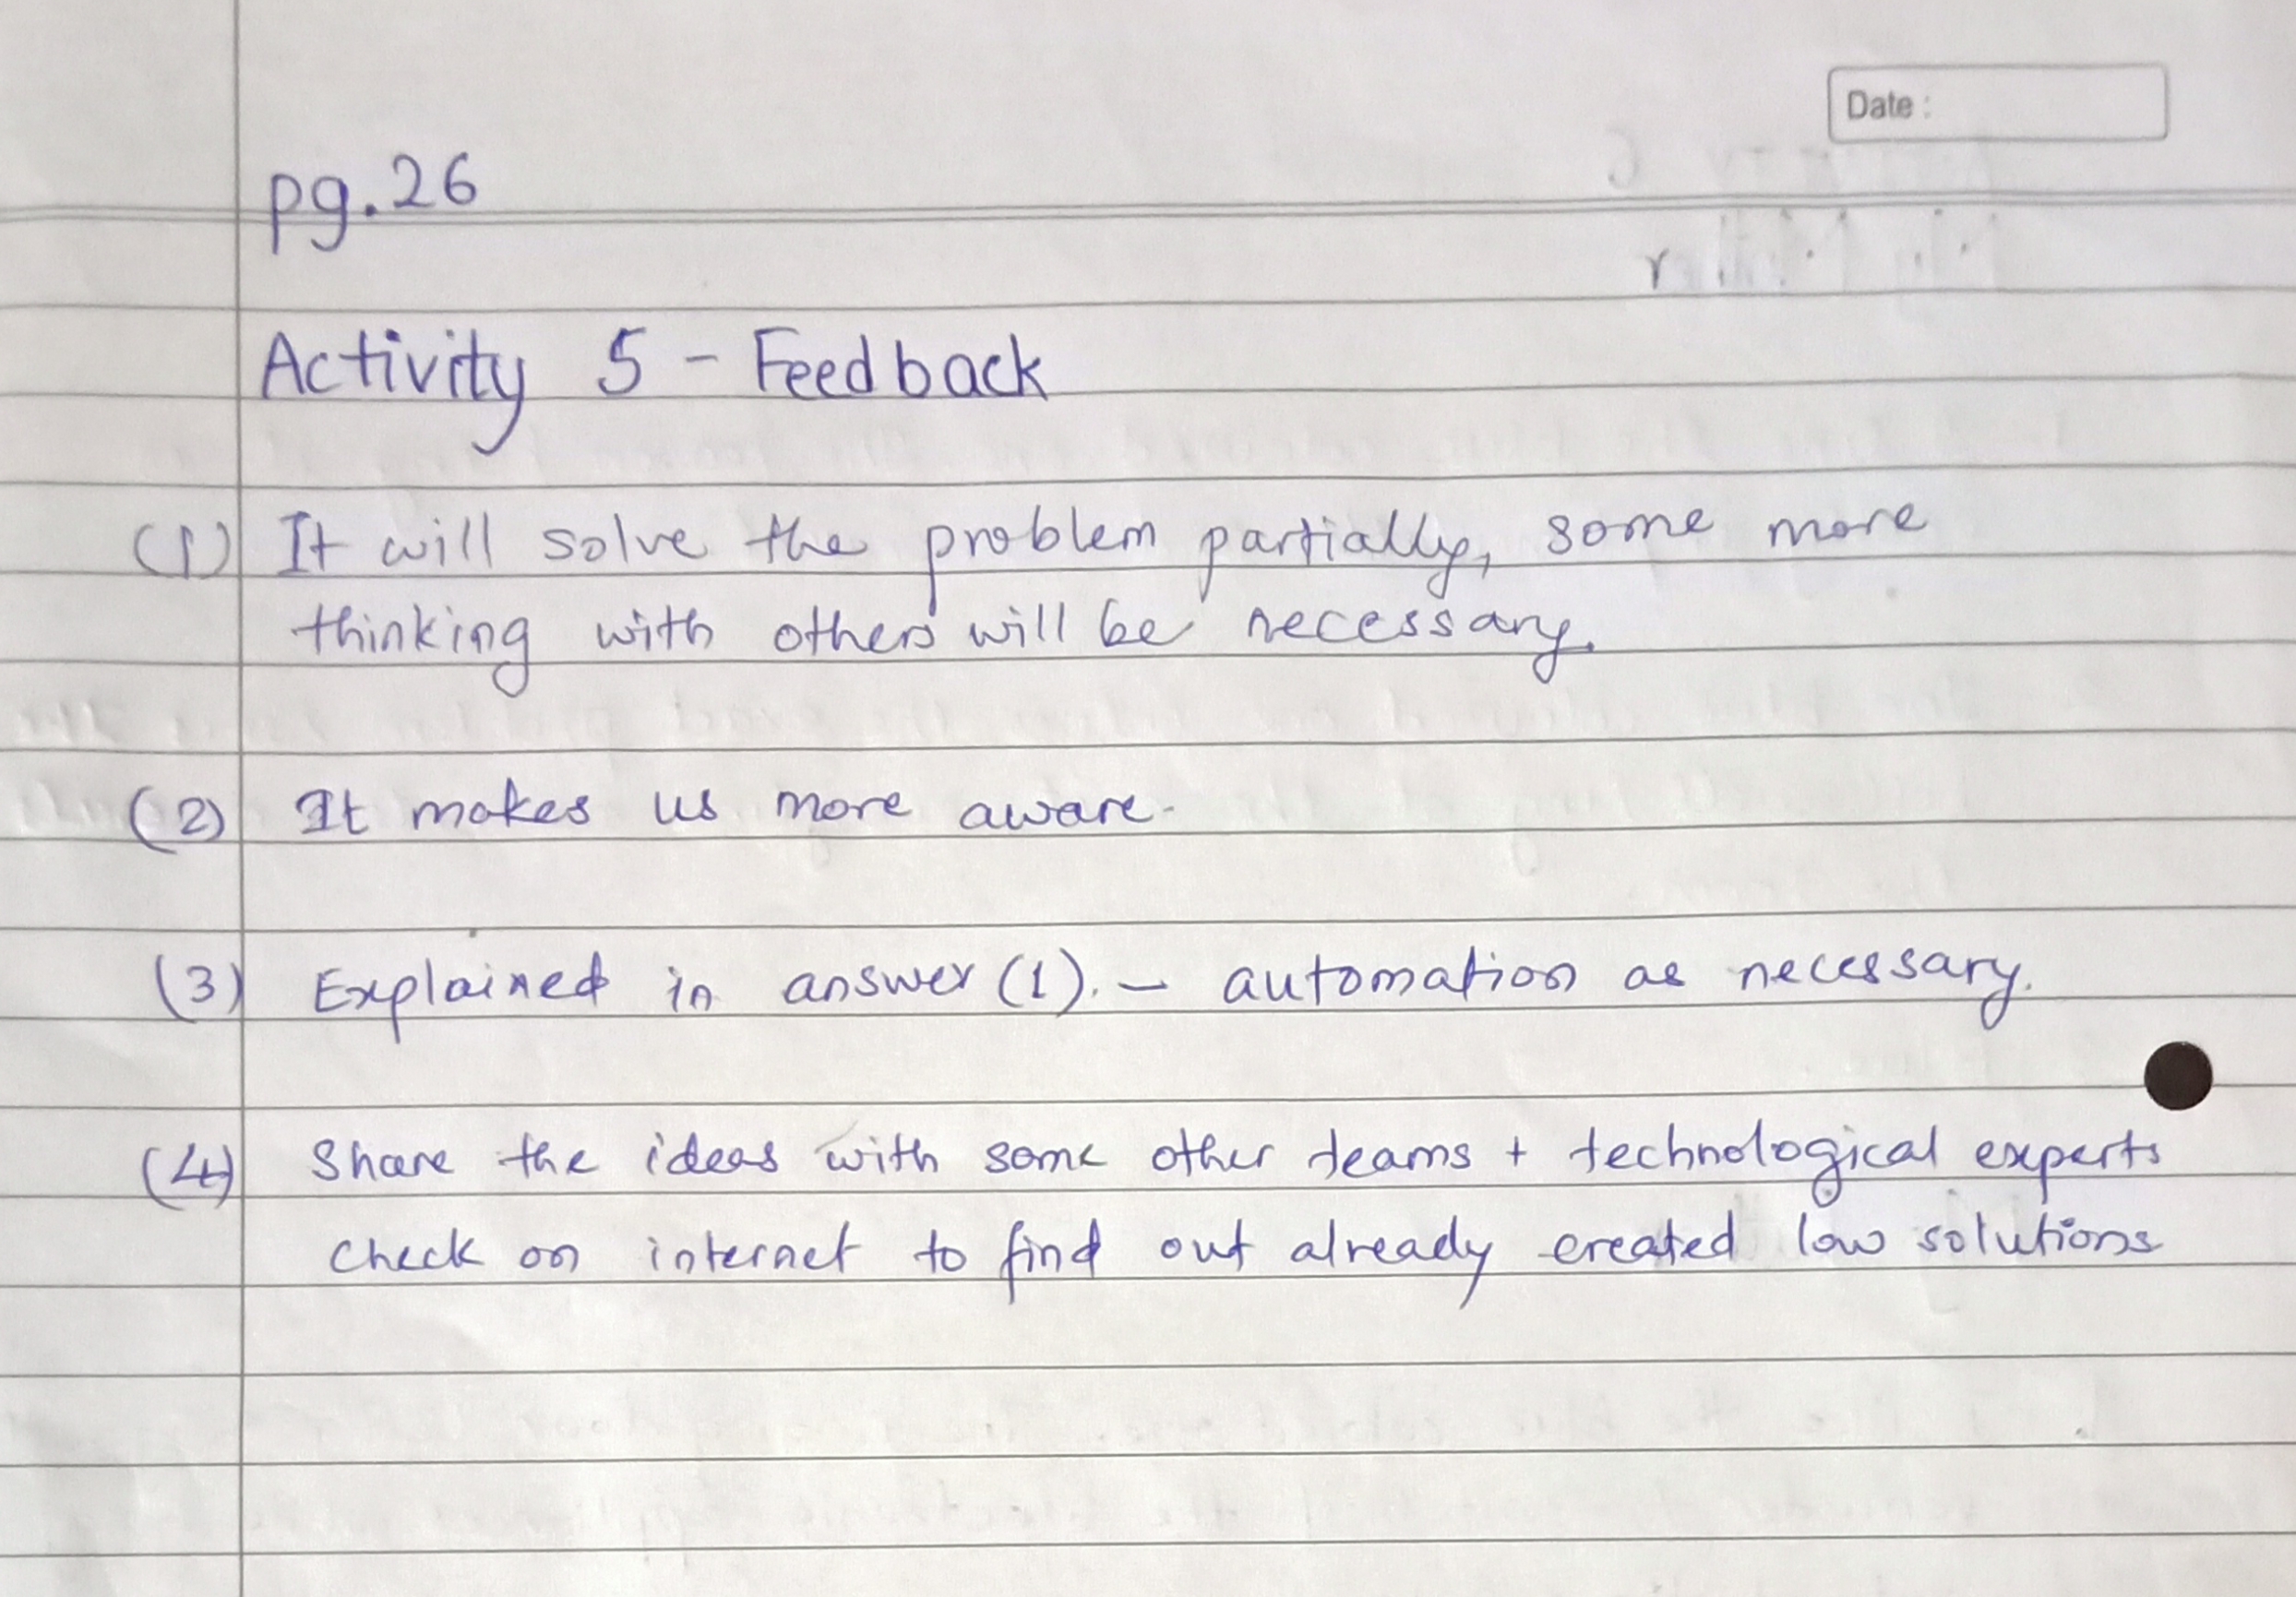 Date :
pg.26
Activity 5 - Feedback
(1) It will solve the problem partially, some more
thinking with others will be necessary.
(2) It makes us more aware.
(3) Explained in answer (1). - automation as necessary.
(4) Share the ideas with some other teams + technological experts
check on internet to find out already created low solutions